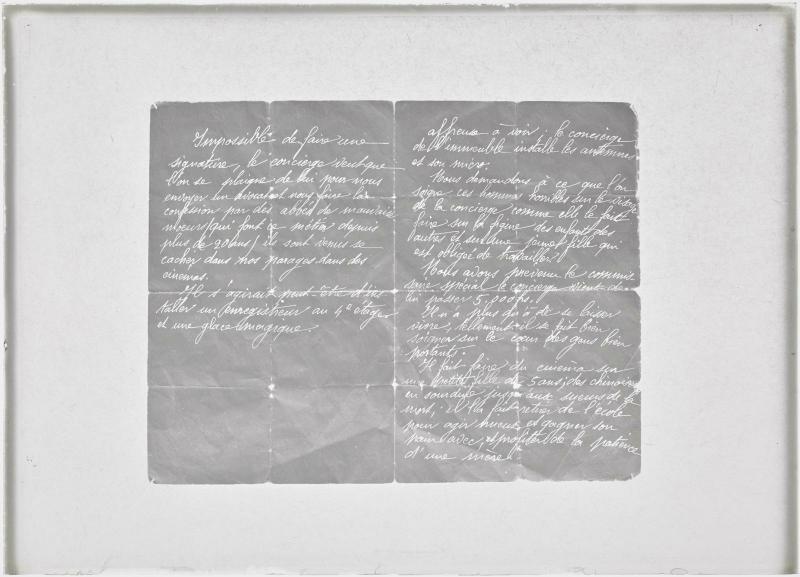 Impossible de faire une
signature, le concierge veut que
l'on se plaigne de lui pour nous
envoyer un avocat et nous faire la
confusion par des abbés de mauvaise
moeurs (qui font ce métier depuis
plus de 20 ans) ils sont venus se
cacher dans nos parages dans des
cinémas.
Il s'agirait peut-être d'ins
taller un enregistreur au 4e étage
et une glace magique.
affreuse à voir; le concierge
de l'immeuble installe les antennes
et son micro.
Nous demandons à ce que l'on
soigne ces hommes nobles sur le
de la concierge comme elle le fait
faire sur la figure des enfants des
autres et sur une jeune fille qui
est obligée de travailler.
Nous avons prévenu le commis
saire spécial le concierge vient de
lui passer 5.000 frs.
Il n'a plus qu'à de se laisser
vivre, tellement il se fait bien
soigner sur le cœur des gens bien
portants.
Il fait faire du cinéma sur
une petite fille de 5 ans, des
en sourdine jusqu'aux sueurs de la
mort; il la fait retirer de l'école
pour agir mieux et gagner son
pain avec, et profiter de la patience
d'une mère.